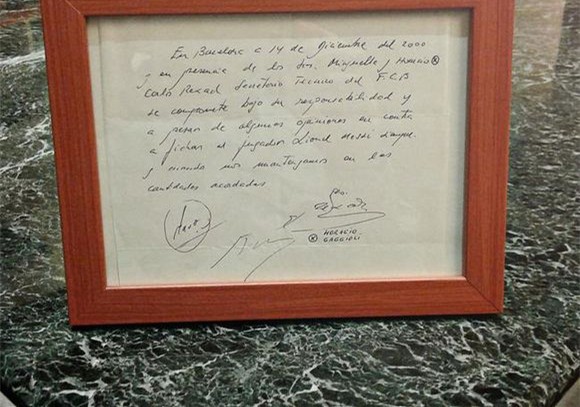 En Barcelona a 14 de Diciembre del 2000
y en presencia de los Srs. Minguella y Horacio Ⓡ
Carles Rexach Secretario Tecnico del F.C.B
se compromete bajo su responsabilidad y
a pesar de algunas opiniones en contra
a fichar al jugador Lionel Messi siempre
y cuando nos mantengamos en las
cantidades acordadas
Ⓡ HORACIO
GAGGIOLI